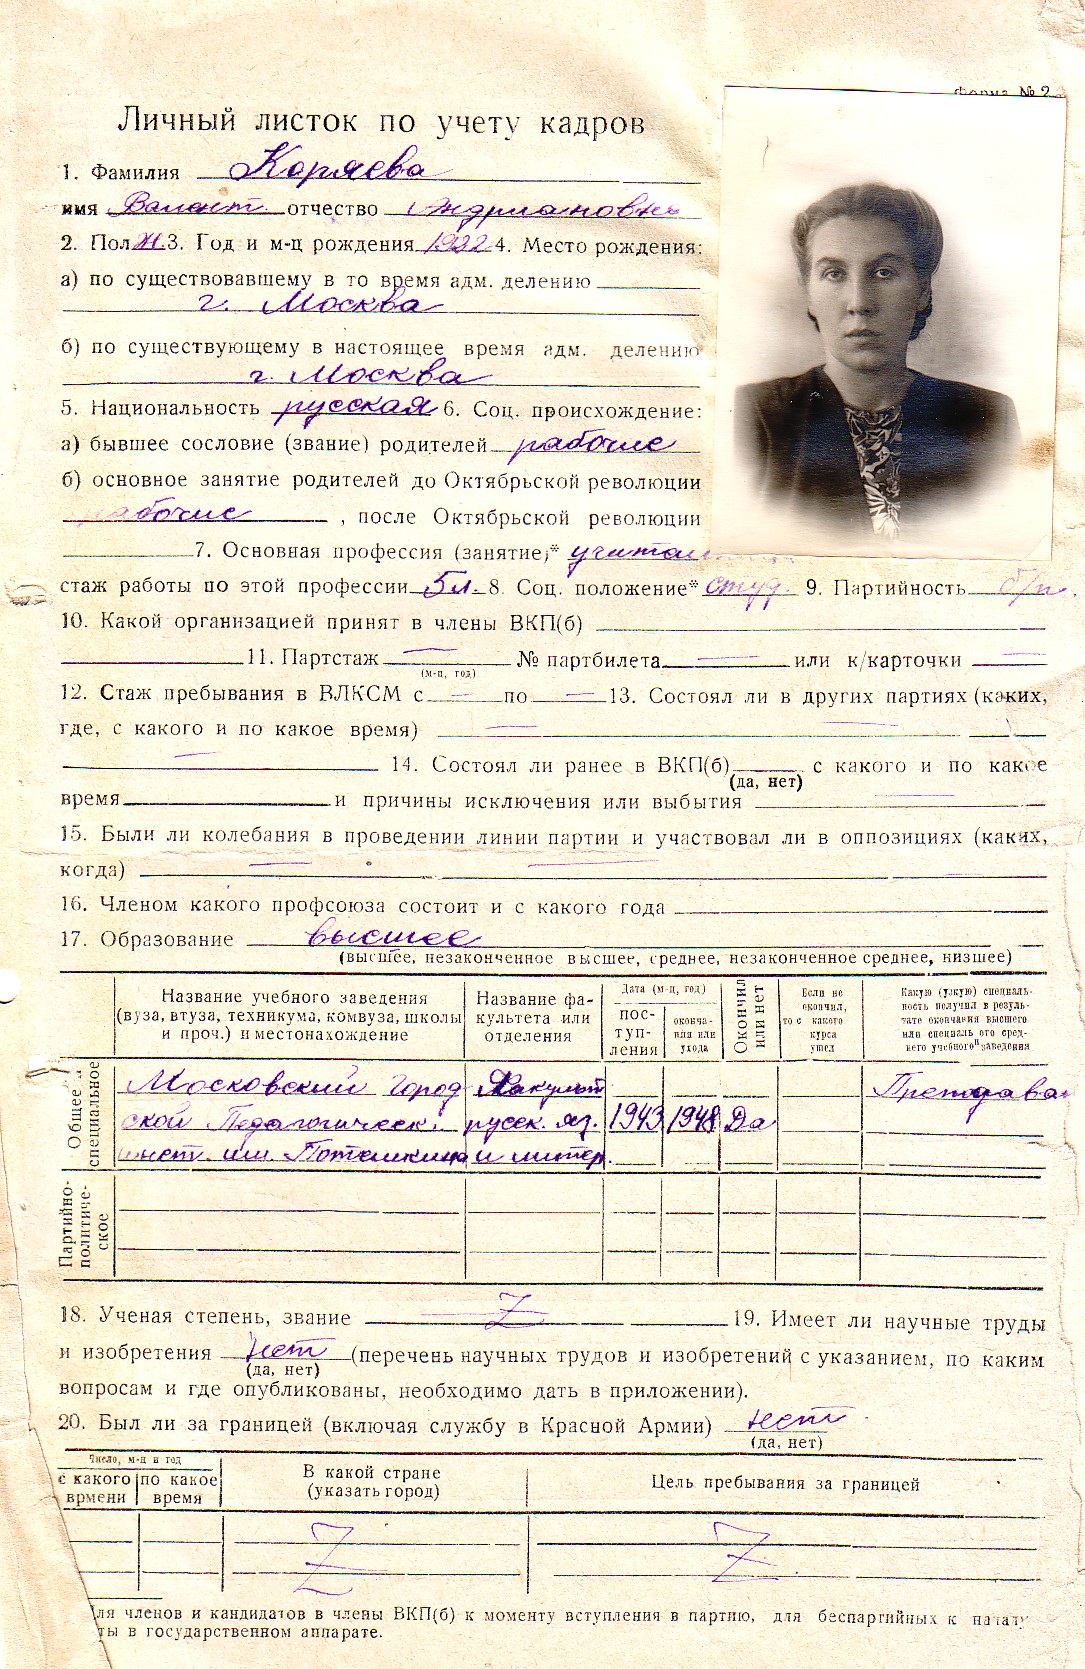 Форма № 2
Личный листок по учету кадров
1. Фамилия Коряева
имя Валент отчество Андриановна
2. Пол ж 3. Год и м-ц рождения 1922 4. Место рождения:
а) по существовавшему в то время адм. делению
г. Москва
б) по существующему в настоящее время адм. делению
г. Москва
5. Национальность русская 6. Соц. происхождение:
а) бывшее сословие (звание) родителей рабочие
б) основное занятие родителей до Октябрьской революции
рабочие , после Октябрьской революции
7. Основная профессия (занятие)* учител
стаж работы по этой профессии 5л. 8. Соц. положение* студ. 9. Партийность б/п.
10. Какой организацией принят в члены ВКП(б)
11. Партстаж — № партбилета — или к/карточки —
(м-ц, год)
12. Стаж пребывания в ВЛКСМ с — по — 13. Состоял ли в других партиях (каких,
где, с какого и по какое время) — —
— 14. Состоял ли ранее в ВКП(б) с какого и по какое
(да, нет)
время и причины исключения или выбытия —
15. Были ли колебания в проведении линии партии и участвовал ли в оппозициях (каких,
когда) — —
16. Членом какого профсоюза состоит и с какого года
17. Образование высшее
(высшее, незаконченное высшее, среднее, незаконченное среднее, низшее)
Название учебного заведения (вуза, втуза, техникума, комвуза, школы и проч.) и местонахождение
Название факультета или отделения
Дата (м-ц, год)
поступления
окончания или ухода
Окончил или нет
Если не окончил, то с какого курса ушел
Какую (узкую) специальность получил в результате окончания высшего или специального среднего учебного заведения
Общее и специальное
Московский город Факульт Преподава
ской Педагогическ. русск. яз. 1943 1948 Да
инст. им. Потемкина и литер.
Партийно-политическое
18. Ученая степень, звание Z 19. Имеет ли научные труды
и изобретения нет (перечень научных трудов и изобретений с указанием, по каким
(да, нет)
вопросам и где опубликованы, необходимо дать в приложении).
20. Был ли за границей (включая службу в Красной Армии) нет
(да, нет)
Число, м-ц и год
с какого врмени
по какое время
В какой стране (указать город)
Цель пребывания за границей
Z Z
для членов и кандидатов в члены ВКП(б) к моменту вступления в партию, для беспартийных к началу
ты в государственном аппарате.